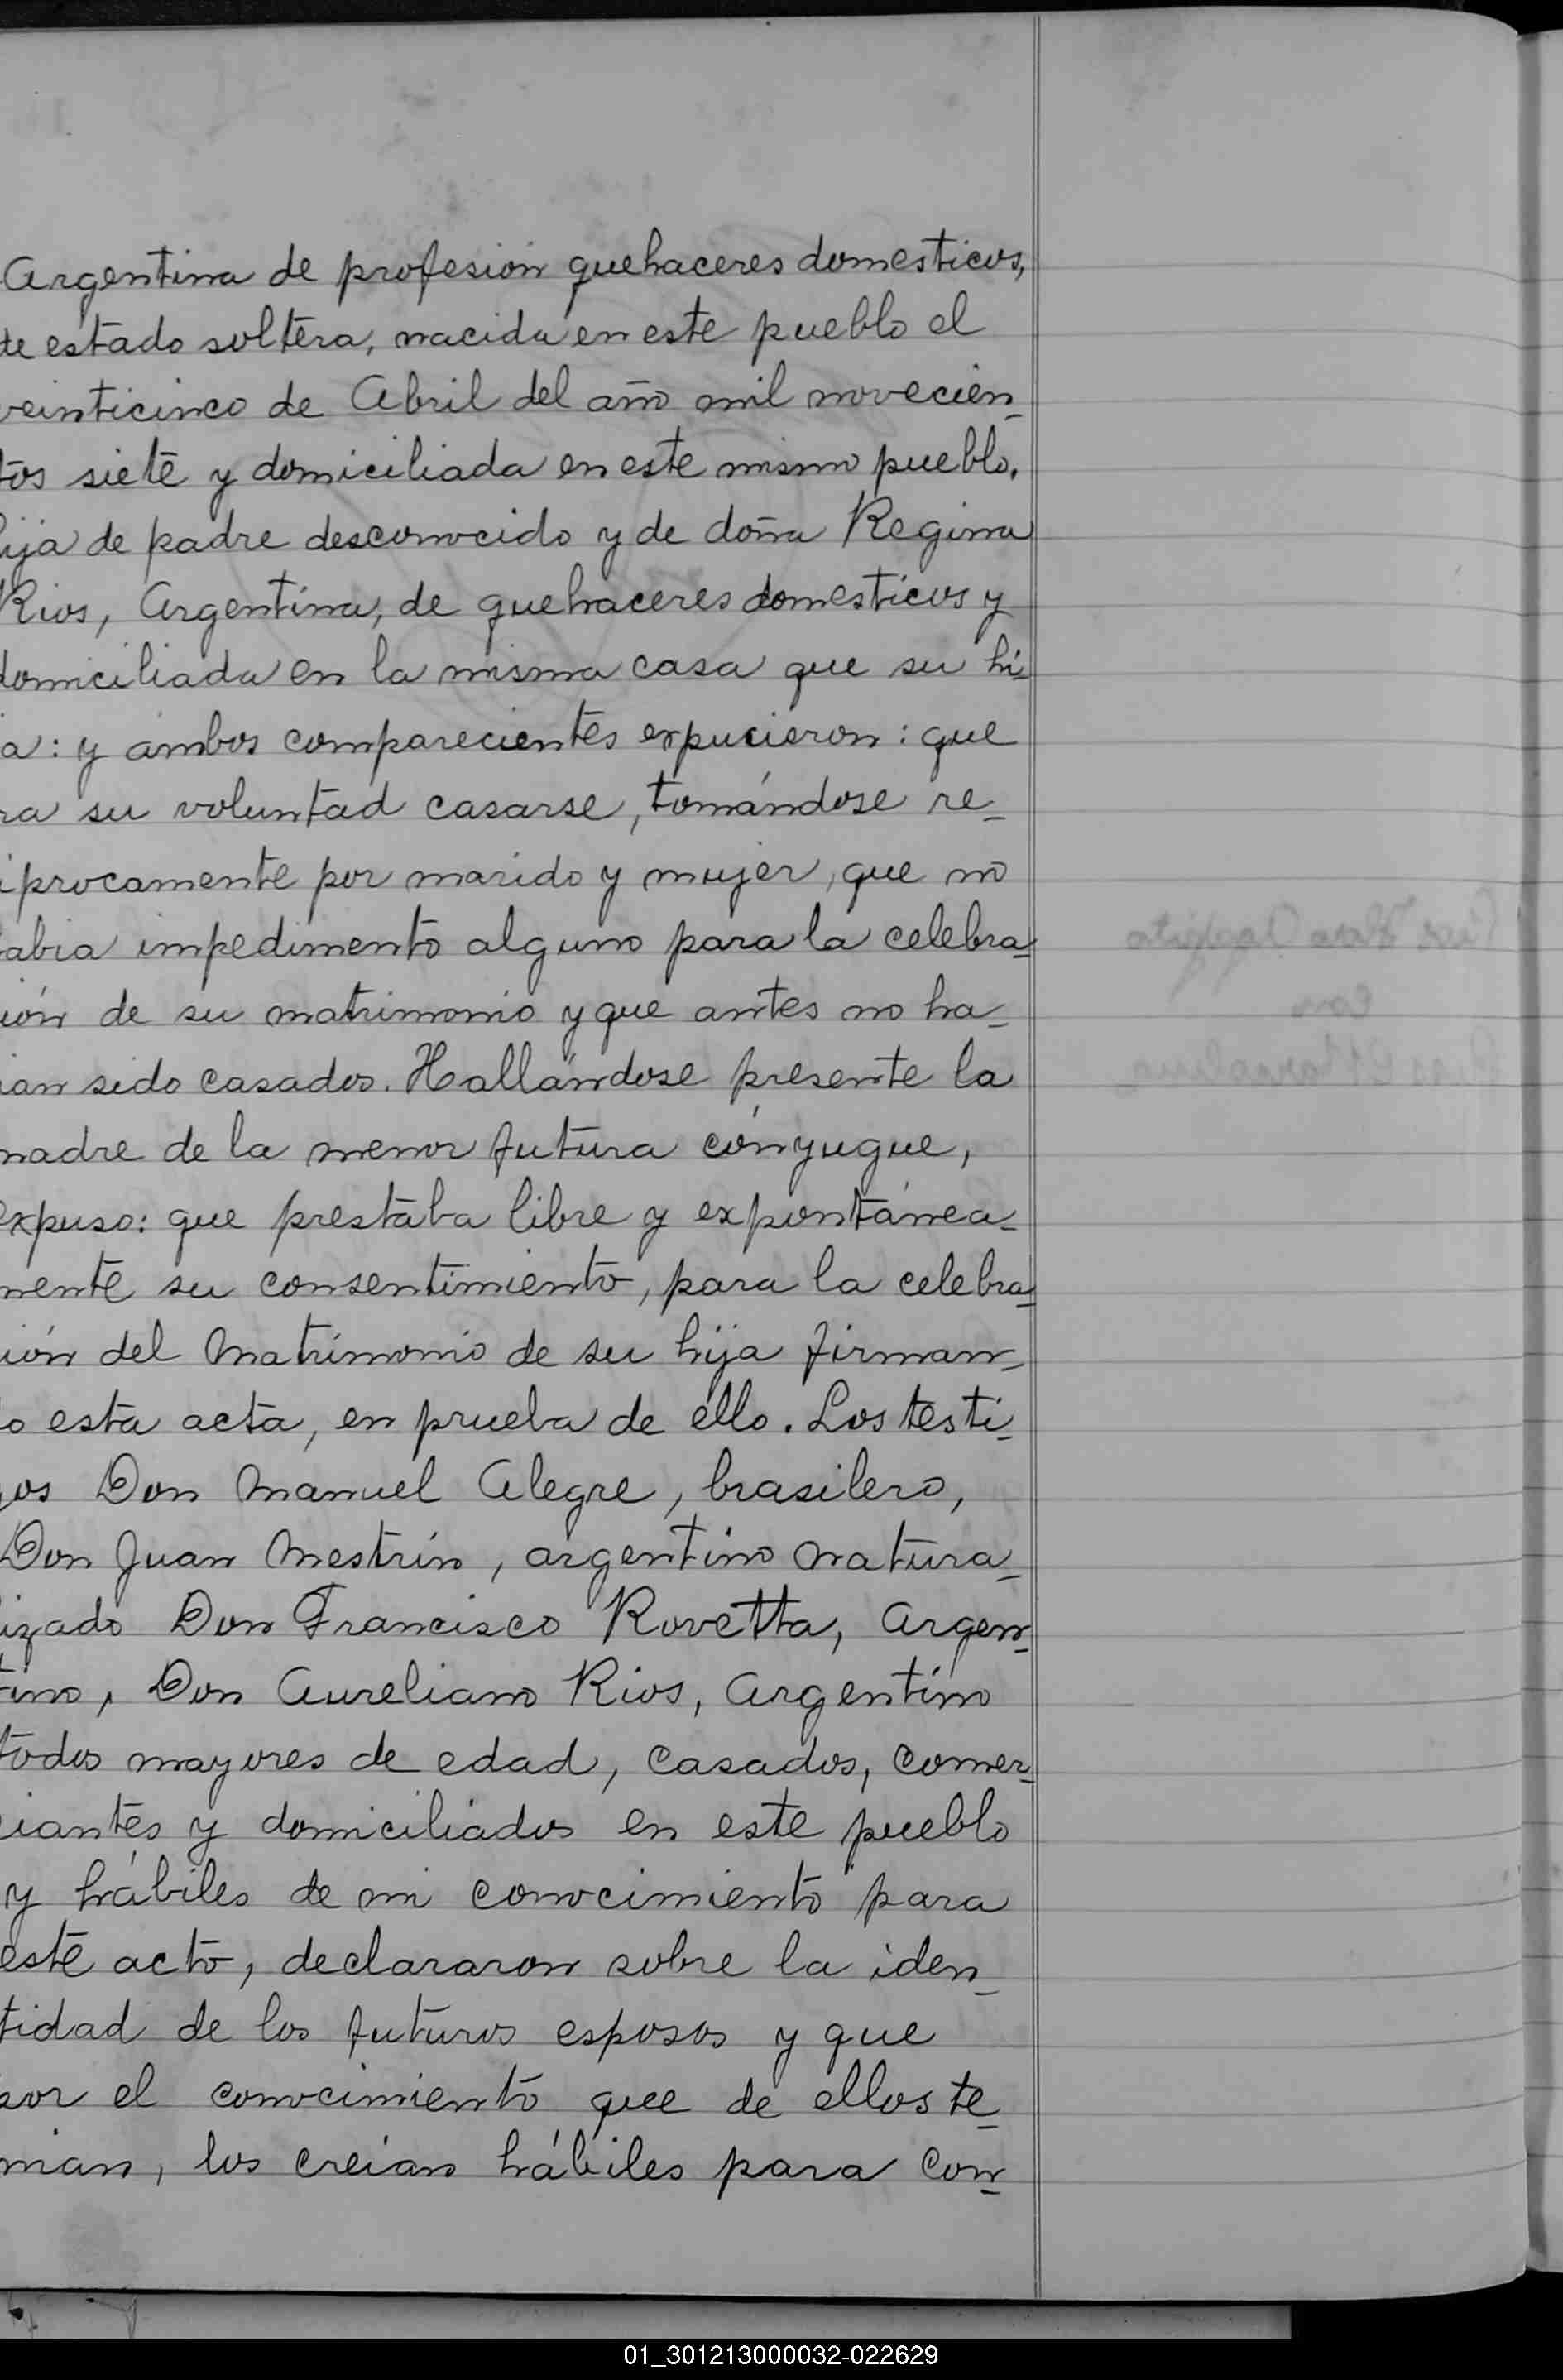 Argentina de profesión quehaceres domesticos,
de estado soltera, nacida en este pueblo el
veinticinco de Abril del año mil novecien_
tos siete y domiciliada en este mismo pueblo,
hija de padre desconocido y de doña Regina
Rios, Argentina, de quehaceres domesticos y
domiciliada en la misma casa que su hi_
a: y ambos comparecientes expucieron: que
ra su voluntad casarse, tomándose re_
iprocamente por marido y mujer, que no
abia impedimento alguno para la celebra_
ión de su matrimonio y que antes no ha_
ian sido casados. Hallándose presente la
madre de la menor futura cónyugue,
expuso: que prestaba libre y expontánea_
mente su consentimiento, para la celebra_
ión del Matrimonio de su hija firman_
o esta acta, en prueba de ello. Los testi_
gos Don Manuel Alegre, brasilero,
Don Juan Mestrin, argentino natura_
lizado Don Francisco Rovetta, Argen_
tino, Don Aureliano Rios, Argentino
todos mayores de edad, casados, comer_
ciantes y domiciliados en este pueblo
y hábiles de mi conocimiento para
este acto, declararon sobre la iden_
tidad de los futuros esposos y que
por el conocimiento que de ellos te_
nian, los creían hábiles para con_
01_301213000032-022629